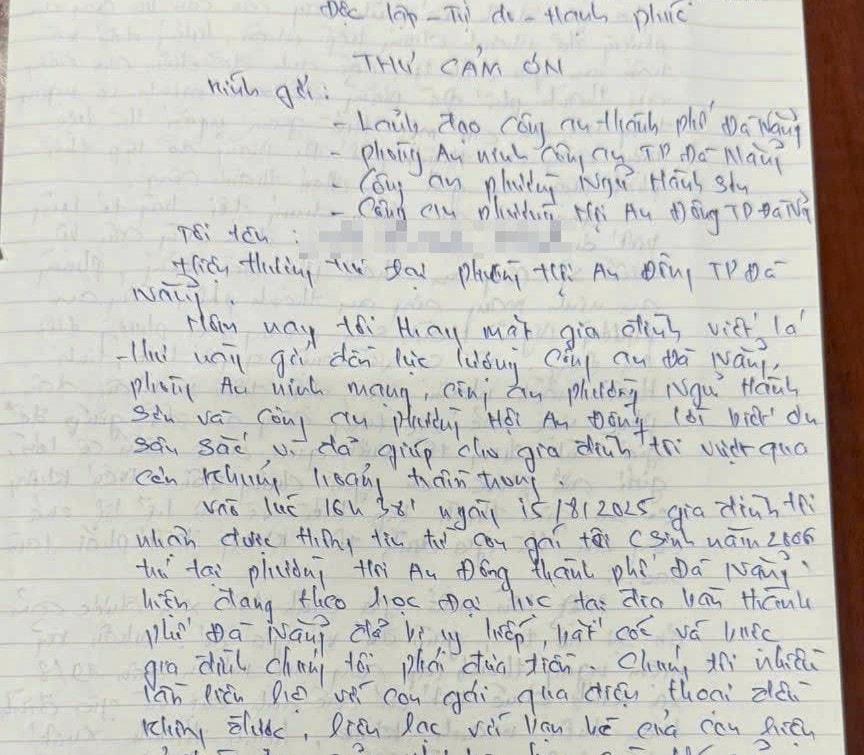 Độc lập - Tự do - Hạnh phúc
THƯ CẢM ƠN
Kính gởi:
- Lãnh đạo Công an thành phố Đà Nẵng
- phòng An ninh Công an TP Đà Nẵng
- Công an phường Ngũ Hành Sơn
- Công an phường Hội An Đông TP Đà Nẵ
Tôi tên :
Hiện thường trú tại phường Hội An Đông TP Đà
Nẵng.
Hôm nay tôi thay mặt gia đình viết lá
thư này gởi đến lực lượng công an Đà Nẵng,
phòng An ninh mạng, công an phường Ngũ Hành
Sơn và Công an phường Hội An Đông lời biết ơn
sâu sắc vì đã giúp cho gia đình tôi vượt qua
cơn khủng hoảng trầm trọng.
vào lúc 16h38' ngày 15/8/2025 gia đình tôi
nhận được thông tin từ con gái tôi (sinh năm 2006
trú tại phường Hội An Đông thành phố Đà Nẵng.
hiện đang theo học Đại học tại địa bàn thành
phố Đà Nẵng đã bị uy hiếp bắt cóc và buộc
gia đình chúng tôi phải đưa tiền. Chúng tôi nhiều
lần liên hệ với con gái qua điện thoại đều
không được, liên lạc với bạn bè của con hiện